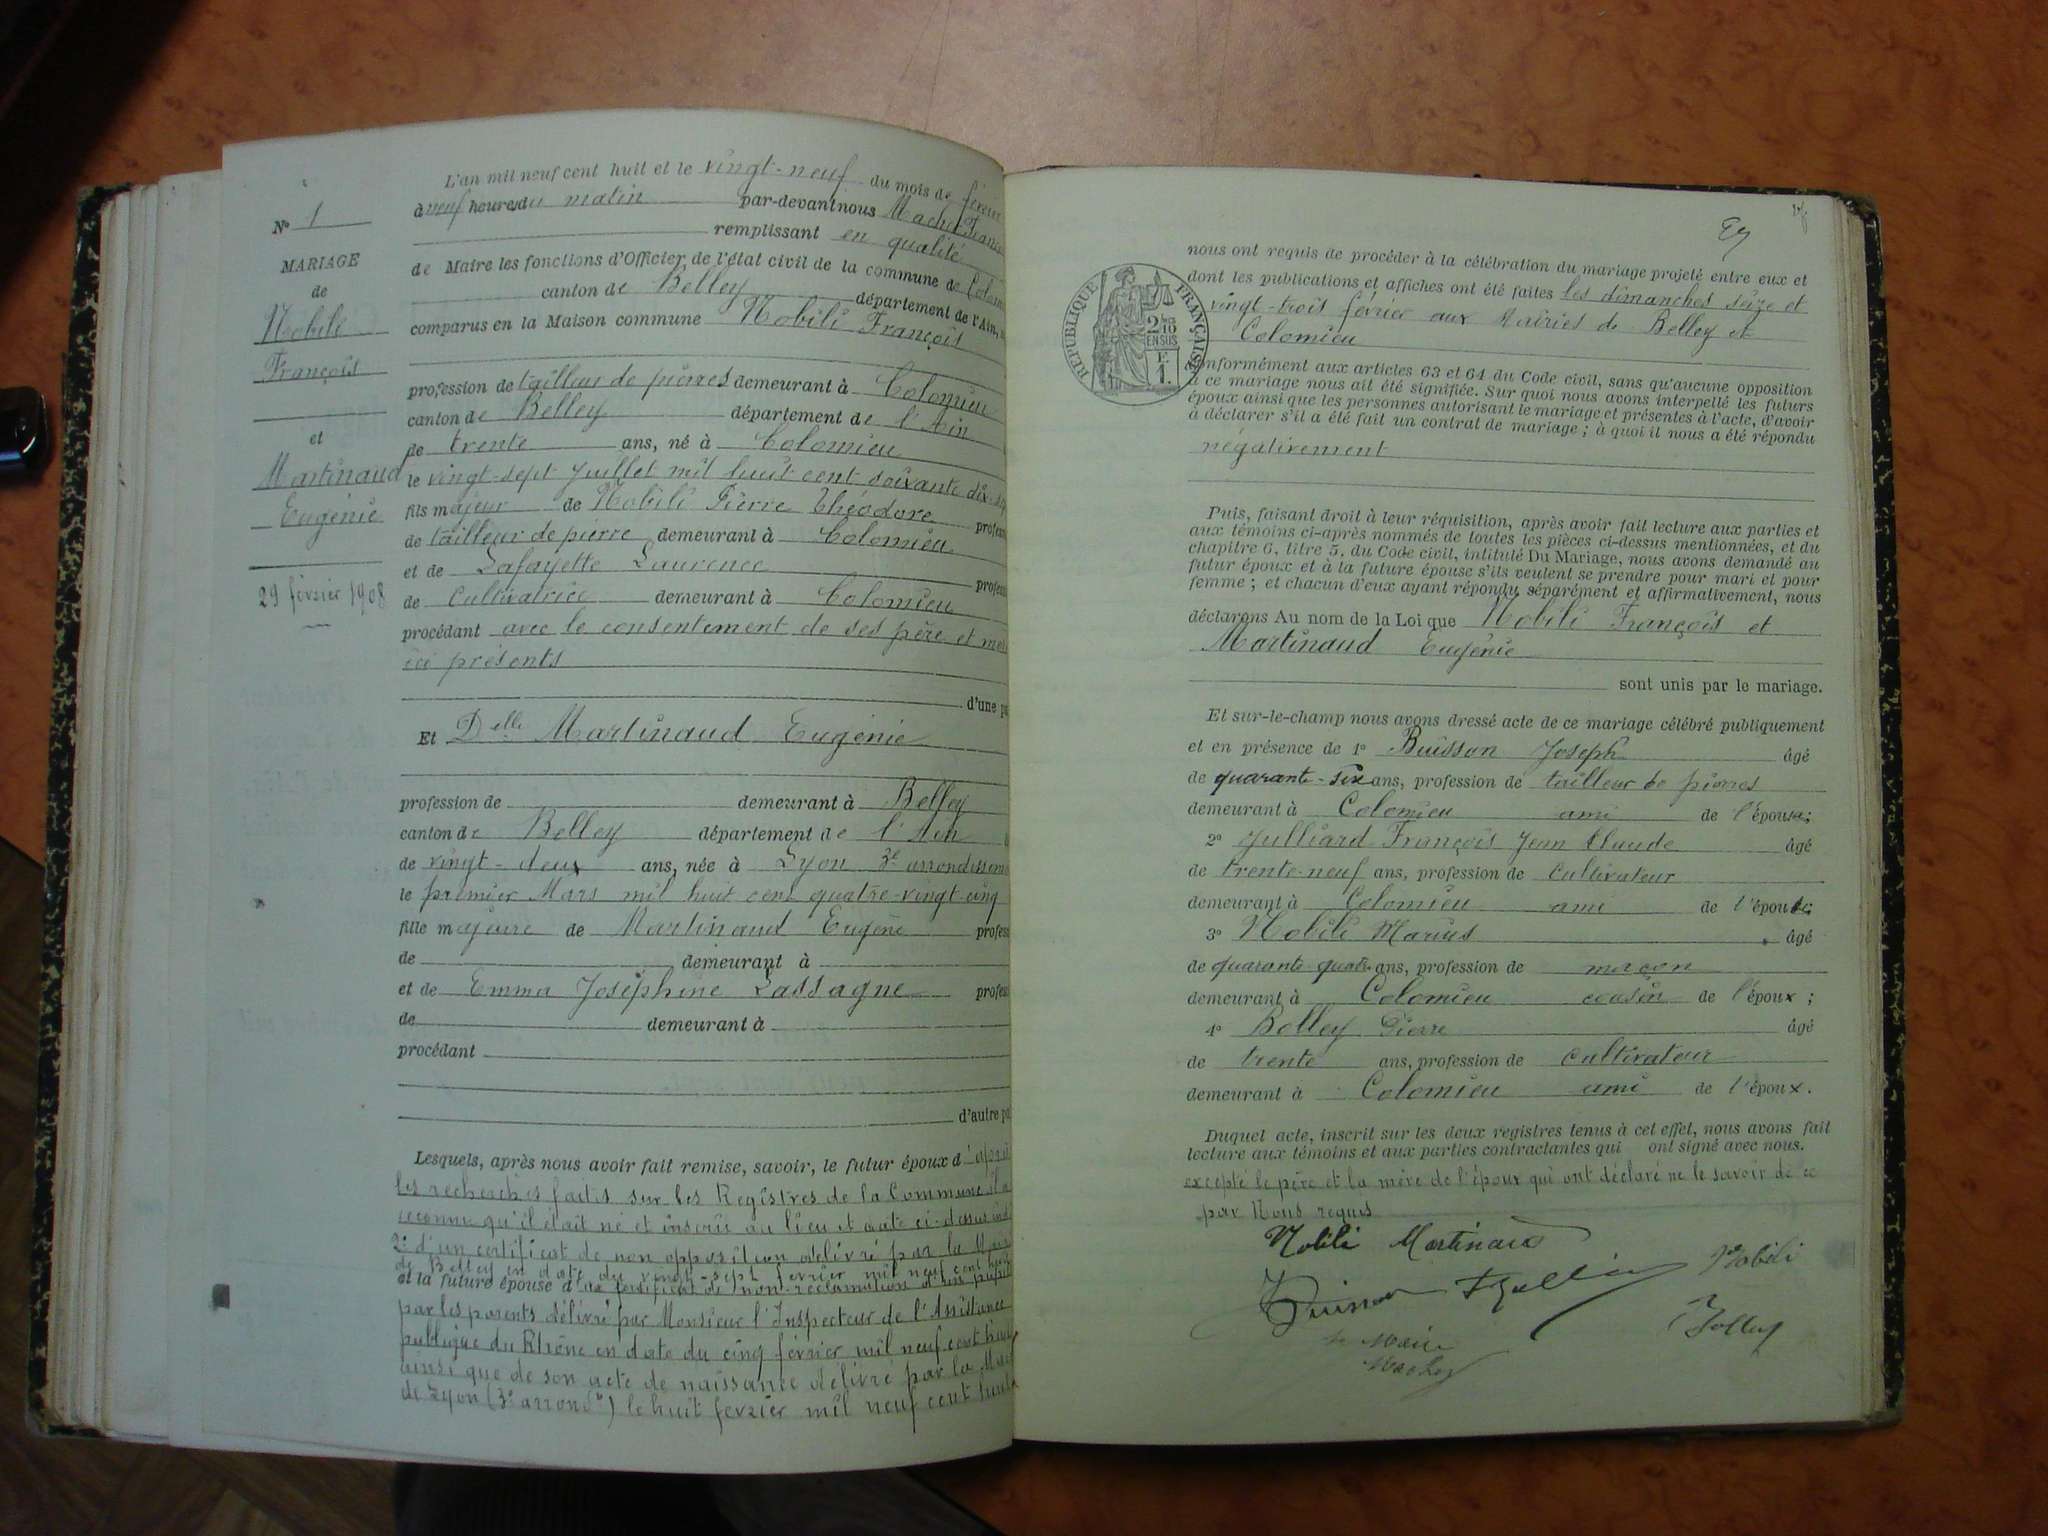 N° 1
MARIAGE
de
Nobili
François
et
Martinaud
Eugénie
29 février 1908
L'an mil neuf cent huit et le vingt-neuf du mois de février
à neuf heures du matin par-devant nous Machet
remplissant en qualité
de Maire les fonctions d'Officier de l'état civil de la commune de
canton de Belley département de l'Ain,
comparus en la Maison commune Nobili François
profession de tailleur de pierres demeurant à Colomieu
canton de Belley département de l'Ain
de trente ans, né à Colomieu
le vingt-sept Juillet mil huit cent soixante dix-sept
fils majeur de Nobili Pierre Théodore
de tailleur de pierre demeurant à Colomieu
et de Lafayette Laurence
de Cultivatrice demeurant à Colomieu
procédant avec le consentement de ses père et mère
ici présents
d'une
Et Delle Martinaud Eugénie
profession de demeurant à Belley
canton de Belley département de l'Ain
de vingt-deux ans, née à Lyon 3e
le premier Mars mil huit cent quatre-vingt-cinq
fille majeure de Martinaud Eugène
de demeurant à
et de Emma Joséphine Lassagne
de demeurant à
procédant
d'autre
Lesquels, après nous avoir fait remise, savoir, le futur époux d'
les recherches faites sur les Registres de la Commune il a
reconnu qu'il était né et inscrit au lieu et date ci-dessus
2° d'un certificat de non opposition délivré par la
de Belley en date du vingt-sept février mil neuf cent
et la future épouse d'un certificat de non-réclamation
par les parents délivré par Monsieur l'Inspecteur de l'Assistance
publique du Rhône en date du cinq février mil neuf cent huit
ainsi que de son acte de naissance délivré par la
de Lyon (3e arrondt) le huit février mil neuf cent huit
nous ont requis de procéder à la célébration du mariage projeté entre eux et
dont les publications et affiches ont été faites les dimanches seize et
vingt-trois février aux Mairies de Belley et
Colomieu
RÉPUBLIQUE FRANÇAISE
conformément aux articles 63 et 64 du Code civil, sans qu'aucune opposition
à ce mariage nous ait été signifiée. Sur quoi nous avons interpellé les futurs
époux ainsi que les personnes autorisant le mariage et présentes à l'acte, d'avoir
à déclarer s'il a été fait un contrat de mariage ; à quoi il nous a été répondu
négativement
Puis, faisant droit à leur réquisition, après avoir fait lecture aux parties et
aux témoins ci-après nommés de toutes les pièces ci-dessus mentionnées, et du
chapitre 6, titre 5, du Code civil, intitulé Du Mariage, nous avons demandé au
futur époux et à la future épouse s'ils veulent se prendre pour mari et pour
femme ; et chacun d'eux ayant répondu séparément et affirmativement, nous
déclarons Au nom de la Loi que Nobili François et
Martinaud Eugénie
sont unis par le mariage.
Et sur-le-champ nous avons dressé acte de ce mariage célébré publiquement
et en présence de 1° Buisson Joseph âgé
de quarante-six ans, profession de tailleur de pierres
demeurant à Colomieu ami de l'épouse;
2° Julliard François Jean Claude âgé
de trente-neuf ans, profession de Cultivateur
demeurant à Colomieu ami de l'épouse;
3° Nobili Marius âgé
de quarante quatre ans, profession de maçon
demeurant à Colomieu cousin de l'époux ;
4° Bolley Pierre âgé
de trente ans, profession de cultivateur
demeurant à Colomieu ami de l'époux.
Duquel acte, inscrit sur les deux registres tenus à cet effet, nous avons fait
lecture aux témoins et aux parties contractantes qui ont signé avec nous.
excepté le père et la mère de l'époux qui ont déclaré ne le savoir de ce
par Nous requis
Nobili Martinaud
Buisson Nobili
Bolley
le Maire